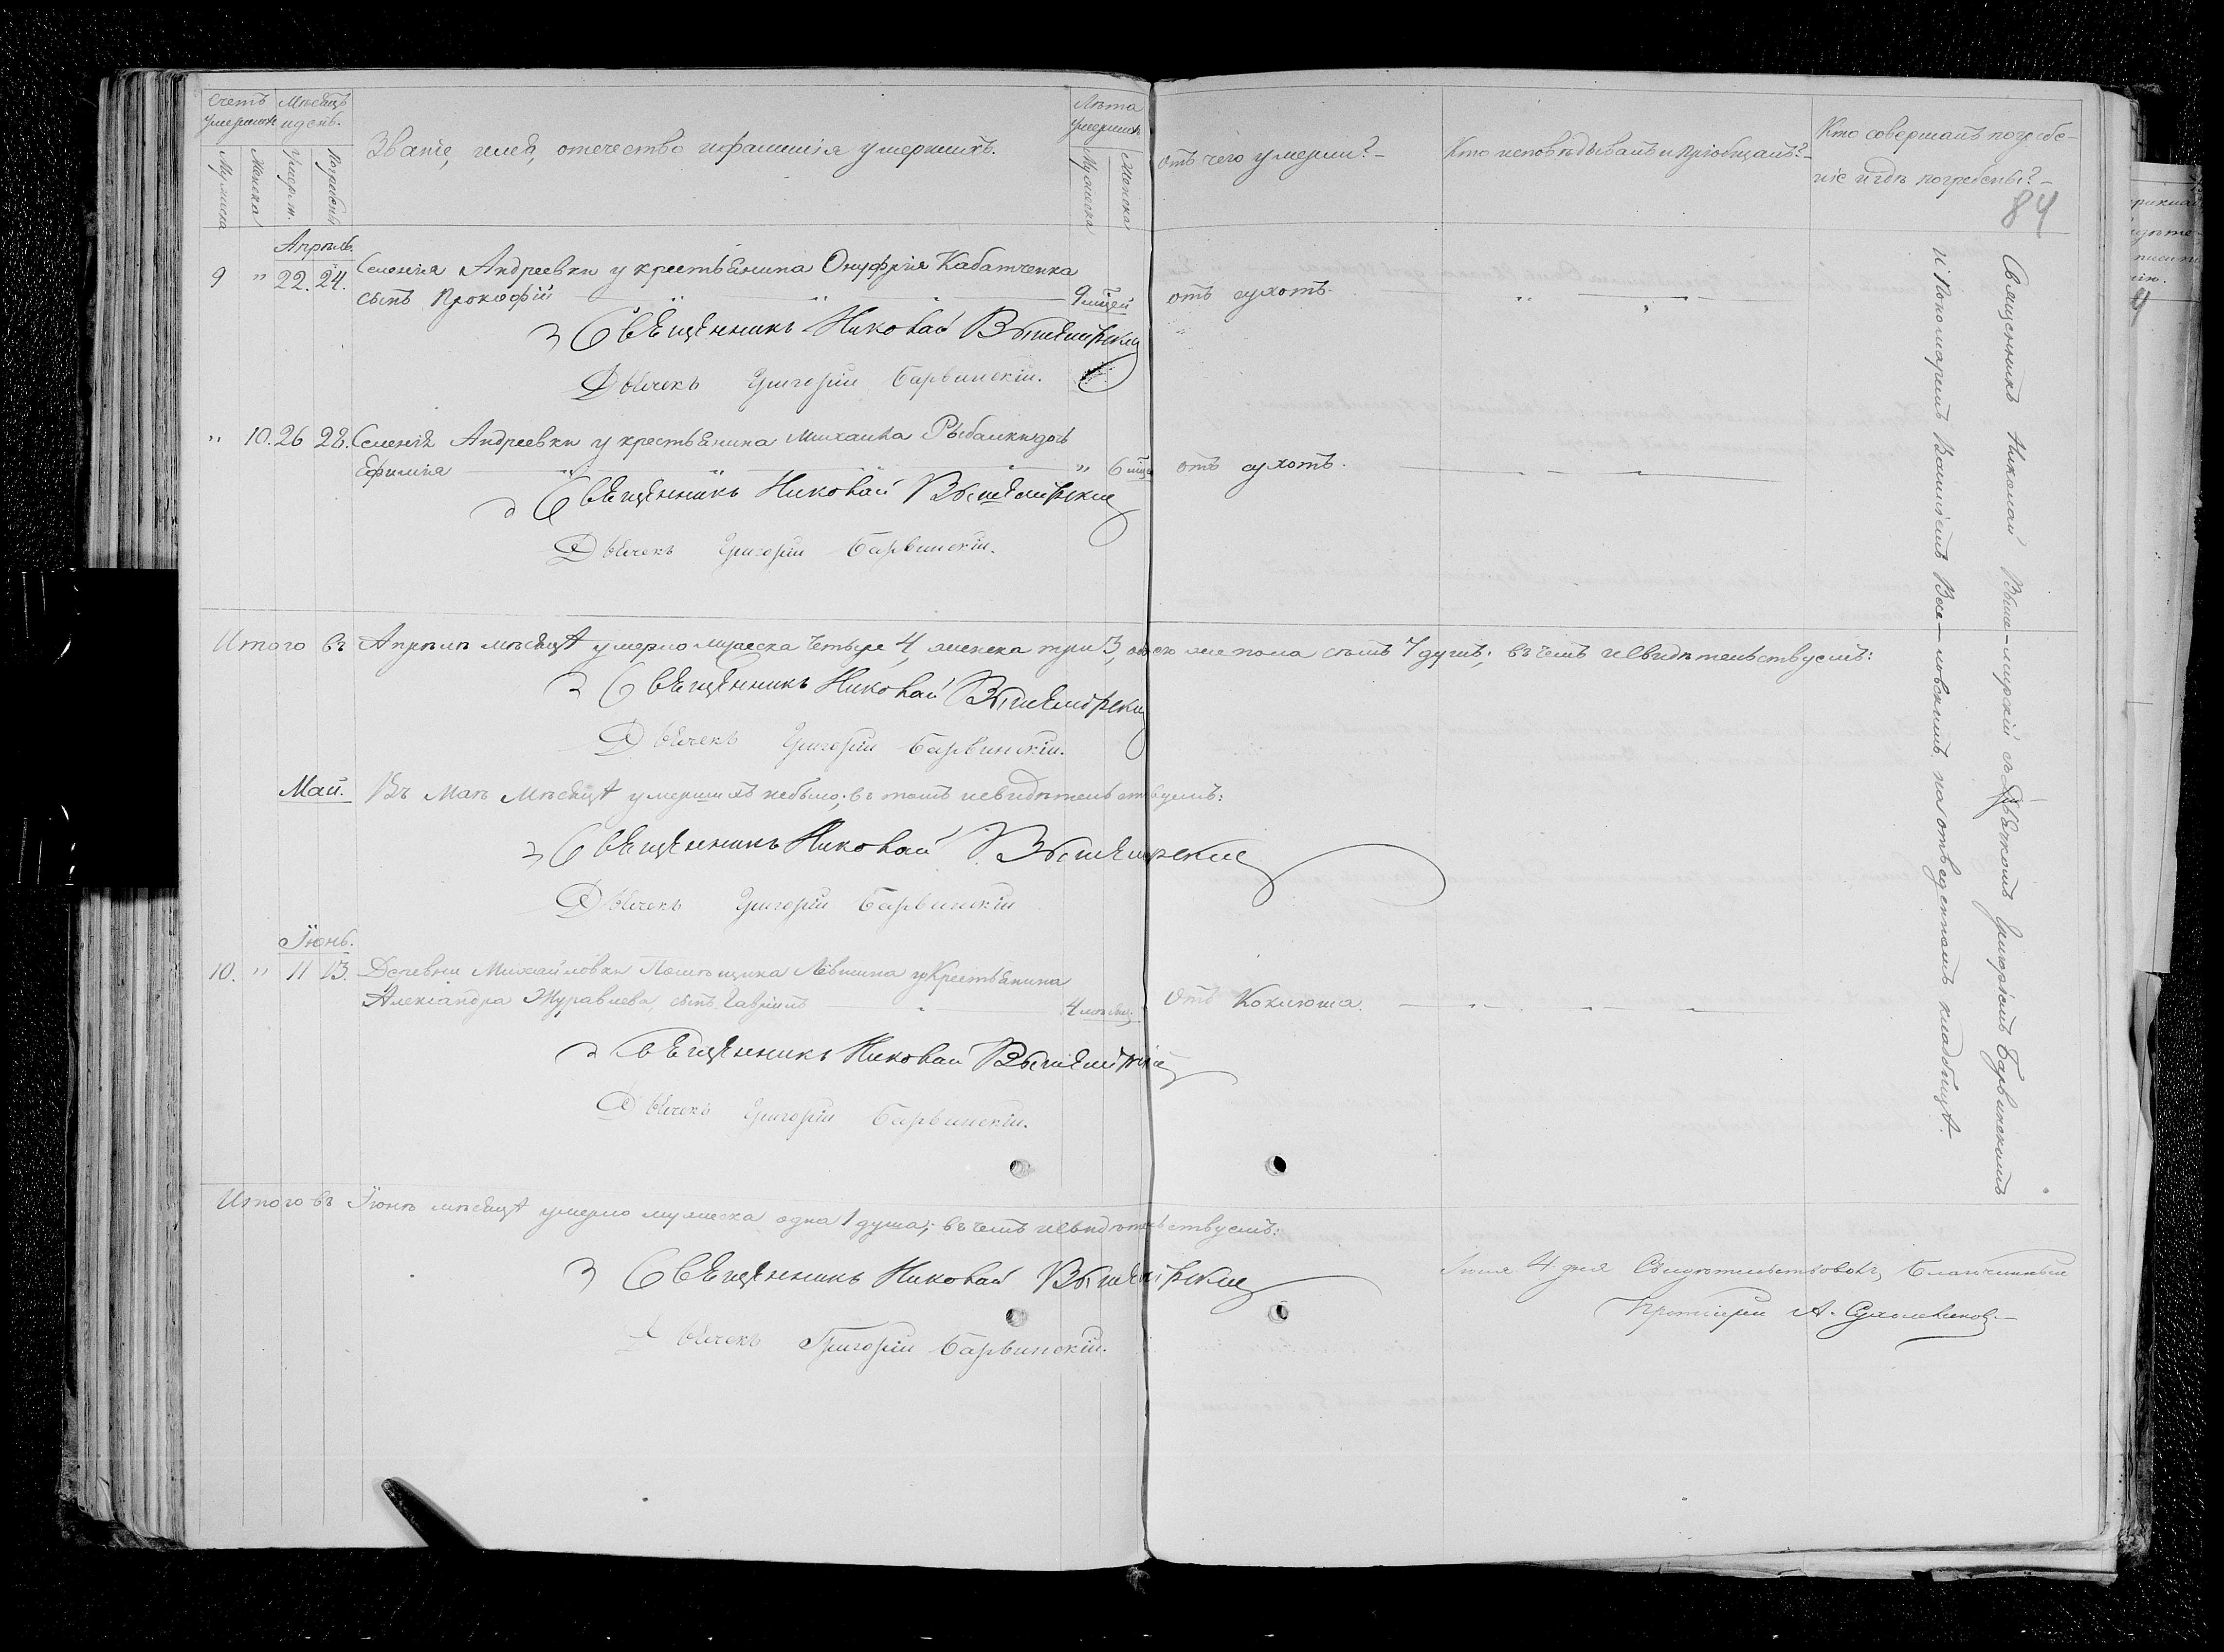 Счетъ умершихъ
Мѣсяцъ и день.
Званіе, имя, отечество и фамилія умершихъ.
Лѣта умершихъ
отъ чего умерли?
Кто исповѣдывалъ и пріобщалъ?
Кто совершалъ погребе-
ніе и гдѣ погребены?
Мужеска
Женска
Умерш.
Погребен.
Мужеска
Женска
84
Апрѣль.
9 " 22. 24. Селенія Андреевки у крестьянина Онуфрія Кабатченка
сынъ Прокофій 9 мцей отъ сухотъ.
Священникъ Николай Вышемирскій
Дьячекъ Григорій Барвинскій.
" 10. 26 28. Селенія Андреевки у крестьянина Михаила Рыбалки дочь
Ефимія " 6 мце отъ сухотъ.
Священникъ Николай Вышемирскій
Дьячекъ Григорій Барвинскій.
Итого въ Апрѣлѣ мѣсяцѣ умерло мужеска четыре 4, женска три 3, обоего же пола семь 7 душъ; въ чемъ и свидѣтельствуемъ:
Священникъ Николай Вышемирскій
Дьячекъ Григорій Барвинскій.
Май. Въ Маѣ мѣсяцѣ умершихъ небыло; въ томъ и свидѣтельствуемъ:
Священникъ Николай Вышемирскій
Дьячекъ Григорій Барвинскій
Іюнь.
10. " 11 13. Деревни Михайловки Помѣщика Лёвшина у Крестьянина
Александра Журавлева, сынъ Гавріилъ 4 мѣсяц. Отъ Коклюша.
Священникъ Николай Вышемирскій
Дьячекъ Григорій Барвинскій.
Итого въ Іюнѣ мѣсяцѣ умерло мужеска одна 1 душа; въ чемъ и свидѣтельствуемъ:
Священникъ Николай Вышемирскій
Дьячекъ Григорій Барвинскій.
Священникъ Николай Выше-мирскій съ Дьячкомъ Григоріемъ Барвинскимъ
и Пономаремъ на отведенномъ кладбищѣ.
Іюля 4 дня Свидѣтельствовалъ Благочинный
Протоіерей А.